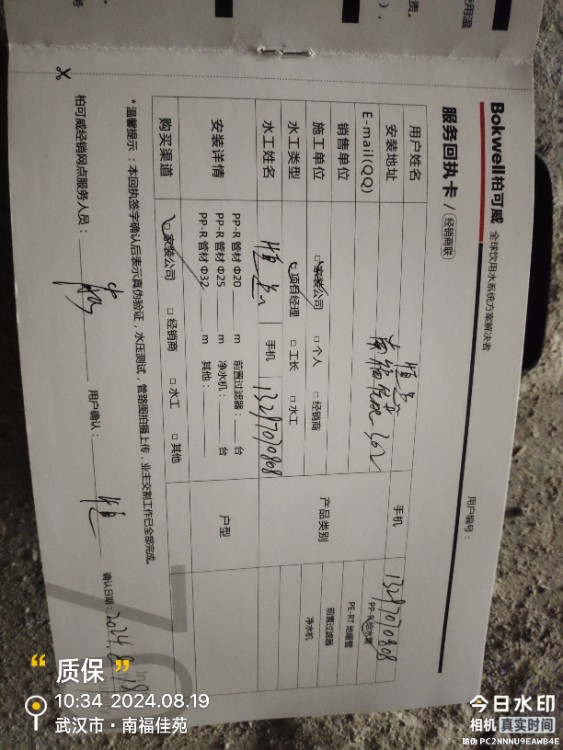 Bokwell柏可威 全球饮用水系统方案解决者
服务回执卡 / 经销商联
用户编号：
用户姓名
手机 13297070808
安装地址 南福佳苑 302
E-mail(QQ)
产品类别
PP-R给水管
PE-RT 地暖管
前置过滤器
净水机
销售单位
施工单位 □家装公司 □个人 □经销商
水工类型 □项目经理 □工长 □水工
水工姓名 手机 13297070808
安装详情
PP-R 管材 Φ20 m 前置过滤器： 台
PP-R 管材 Φ25 m 净水机： 台
PP-R 管材 Φ32 m 其他：
户型
购买渠道 □家装公司 □经销商 □水工 □其他
*温馨提示：本回执签字确认后表示真伪验证，水压测试，管路图拍摄上传，业主交割工作已全部完成。
柏可威经销网点服务人员： 用户确认： 确认日期：2024.8.19
“质保”
10:34 2024.08.19
武汉市·南福佳苑
今日水印
相机 真实时间
防伪 PC2NNNU9EAWB4E